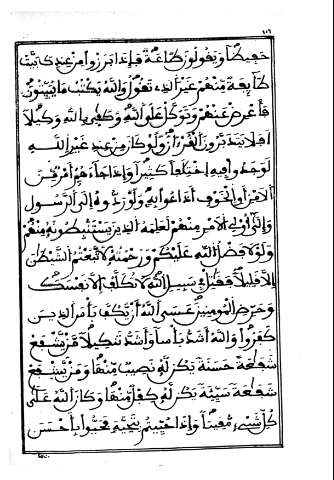 ١١٦
حفيظا ويقولون طاعة فإذا برزوا من عندك بيت
طايفة منهم غير الذي تقول والله يكتب ما يبيتون
فأعرض عنهم وتوكل على الله وكفى بالله وكيلا
افلا يتدبرون القرءان ولو كان من عند غير الله
لوجدوا فيه اختلفا كثيرا وإذا جاءهم أمر من
الامن أو الخوف أذاعوا به ولو ردوه إلى الرسول
وإلى أولي الامر منهم لعلمه الذين يستنبطونه منهم
ولولا فضل الله عليكم ورحمته لاتبعتم الشيطن
إلا قليلا فقتل في سبيل الله لا تكلف إلا نفسك
وحرض المومنين عسى الله أن يكف بأس الذين
كفروا والله أشد بأسا وأشد تنكيلا من يشفع
شفعة حسنة يكن له نصيب منها ومن يشفع
شفعة سيئة يكن له كفل منها وكان الله على
كل شيء مقيتا وإذا حييتم بتحية فحيوا بأحسن